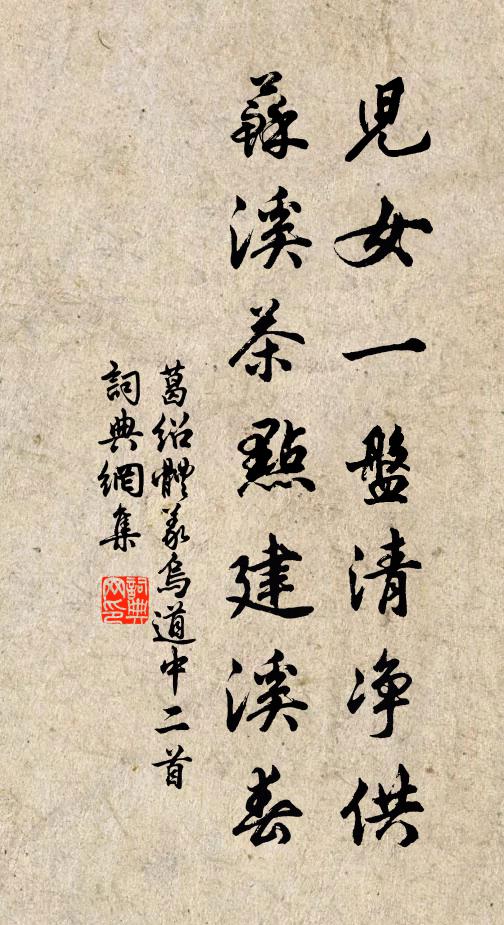 兒女一盤清净供
蘇溪茶點建溪春
葛紹體義烏道中二首
詞典網集
詞典網印